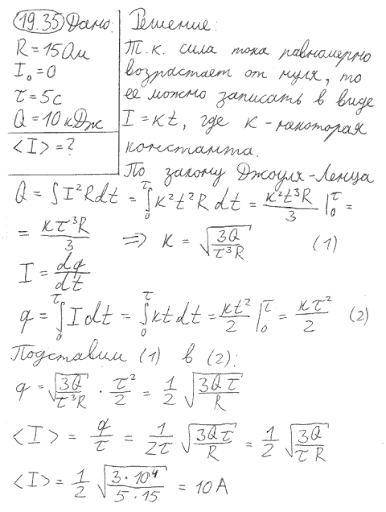 19.35 Дано: Решение:
R = 15 Ом Т.к. сила тока равномерно
I₀ = 0 возрастает от нуля, то
τ = 5 с ее можно записать в виде
Q = 10 кДж I = kt, где k - некоторая
<I> = ? константа.
По закону Джоуля-Ленца
Q = ∫ I²Rdt = ∫₀^τ k²t²R dt = k²t³R/3 |₀^τ =
= kτ³R/3 ⇒ k = √(3Q/τ³R) (1)
I = dq/dt
q = ∫₀^τ I dt = ∫₀^τ kt dt = kt²/2 |₀^τ = kτ²/2 (2)
Подставим (1) в (2):
q = √(3Q/τ³R) · τ²/2 = 1/2 √(3Qτ/R)
<I> = q/τ = 1/2τ √(3Qτ/R) = 1/2 √(3Q/τR)
<I> = 1/2 √(3·10⁴/5·15) = 10 А